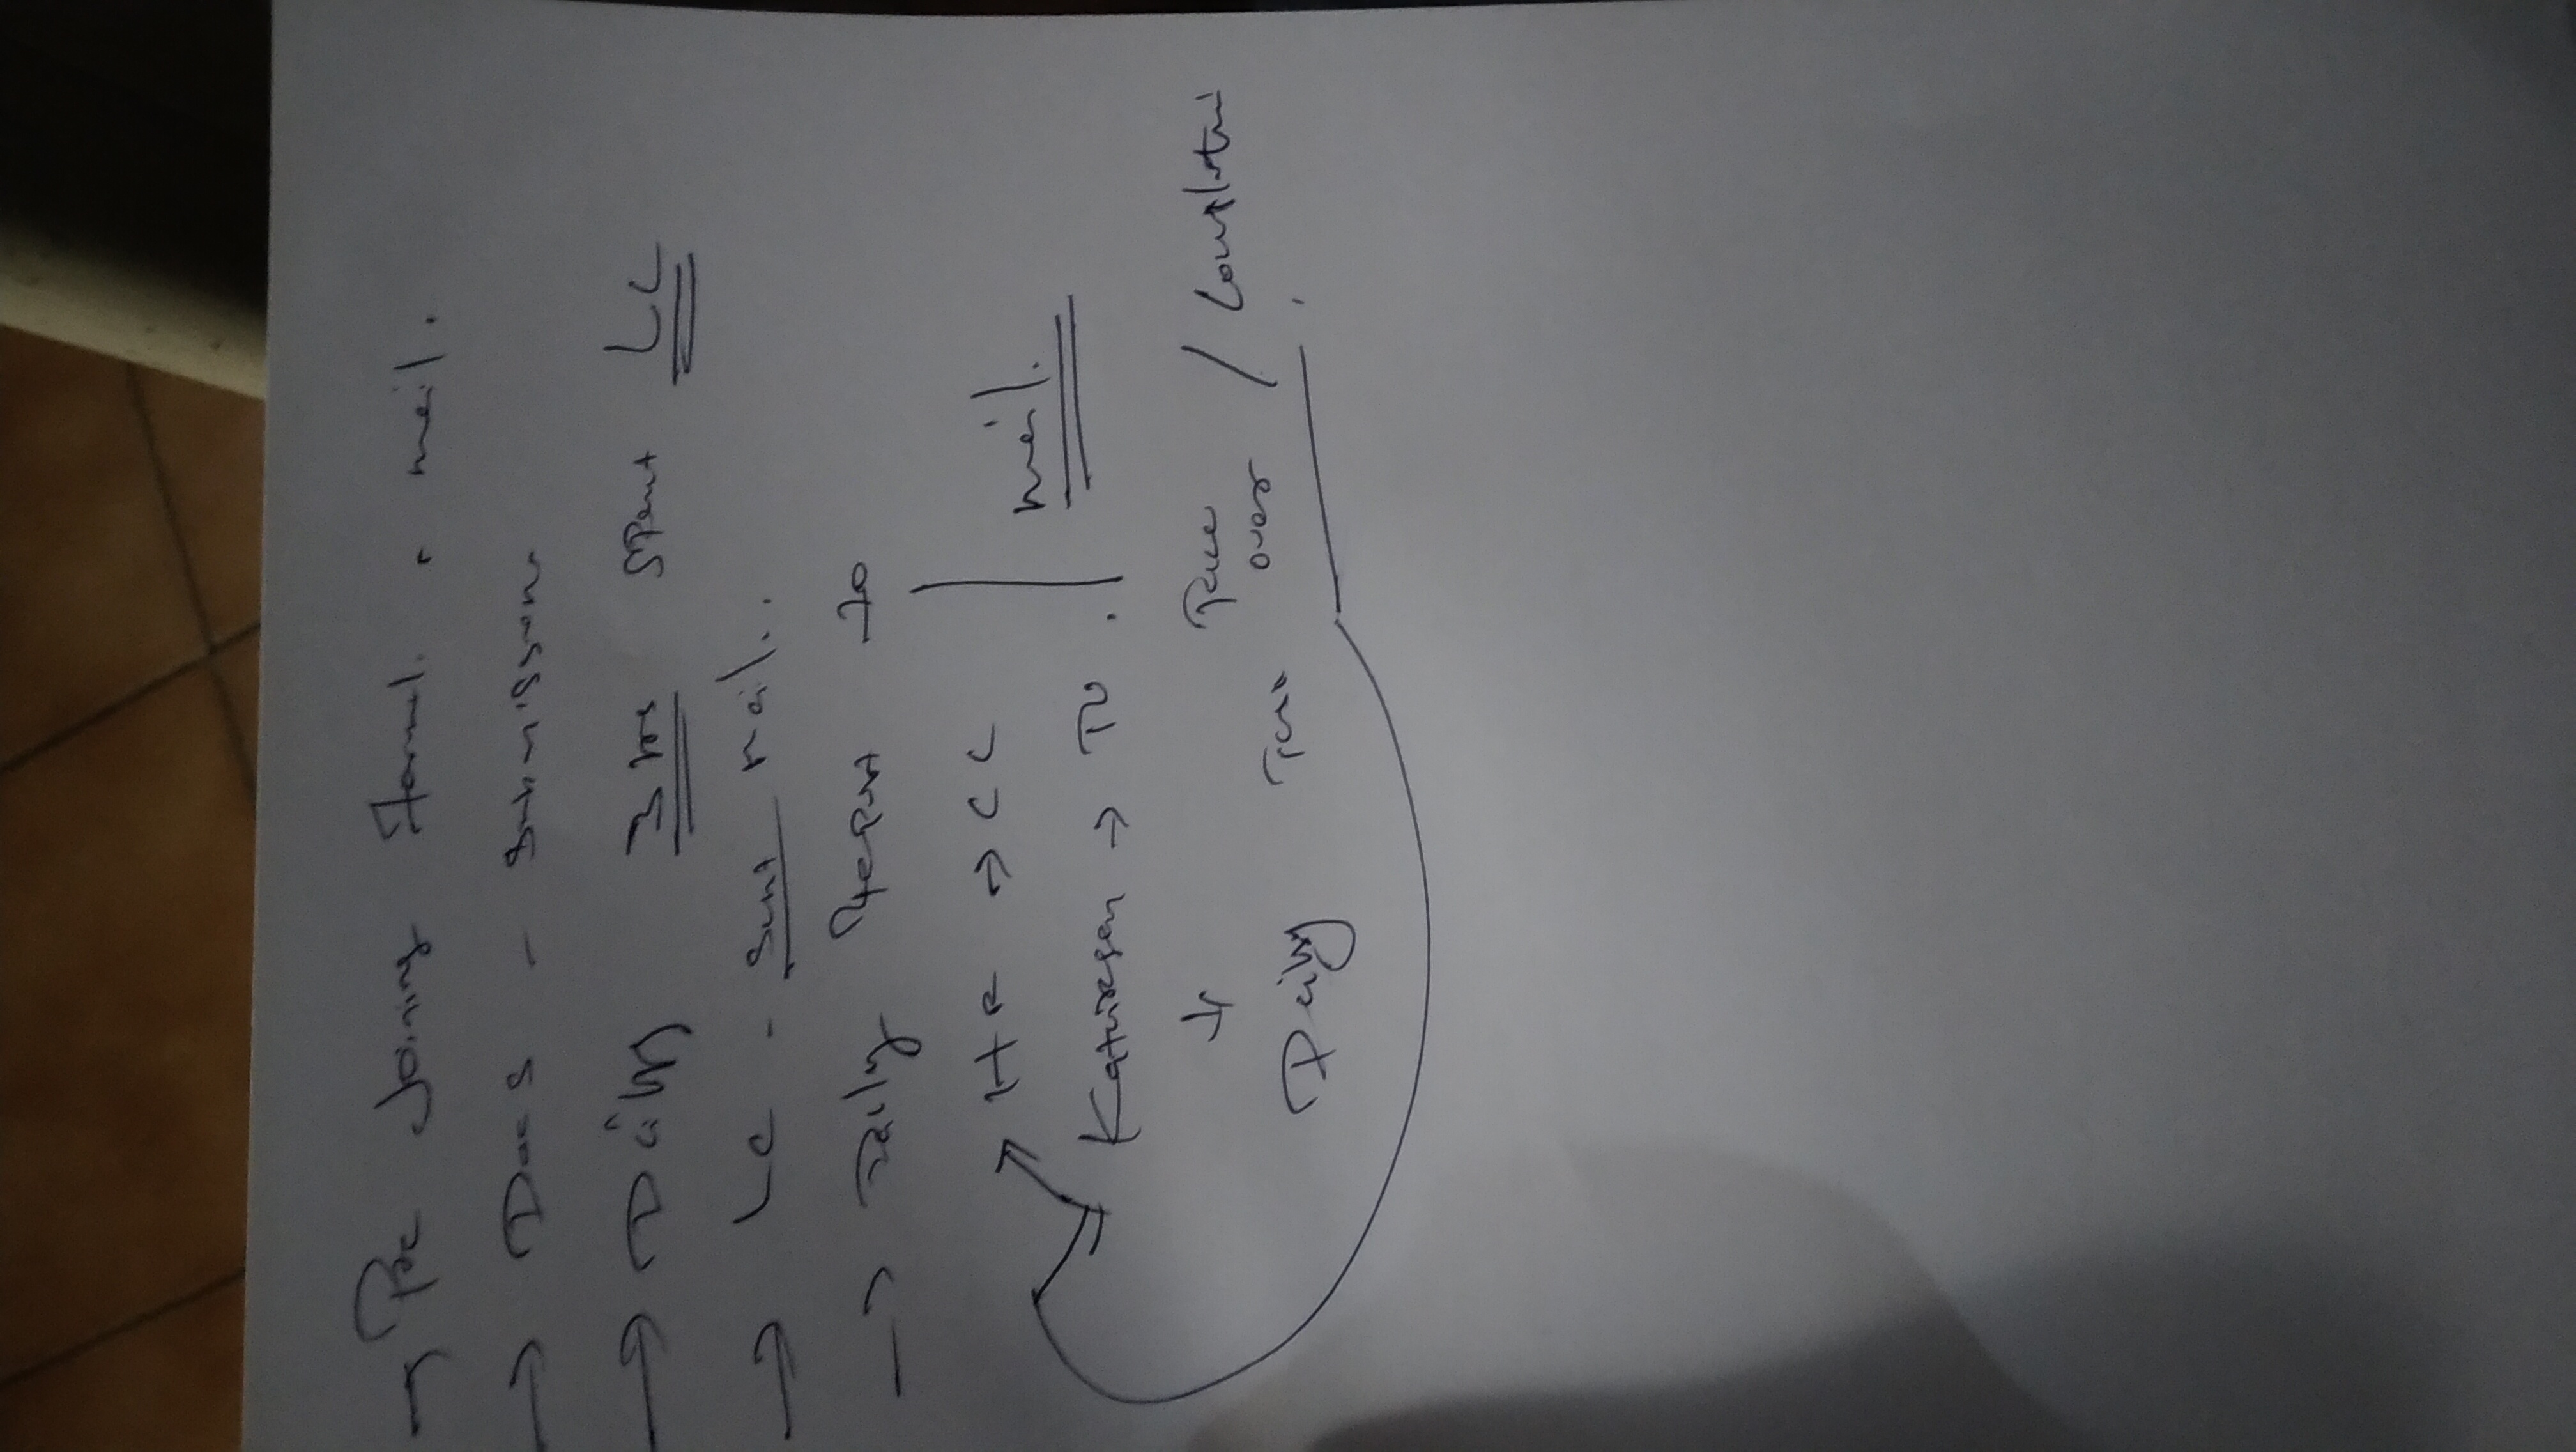 → Pre Joining Formal. mail.
→ Docs - Submission
→ Daily 3 hrs Spent LC
→ LC - Sent mail..
→ Daily Report to
HR → CC
mail.
Kathiresan → TO .
↓
Daily Task over / Completion